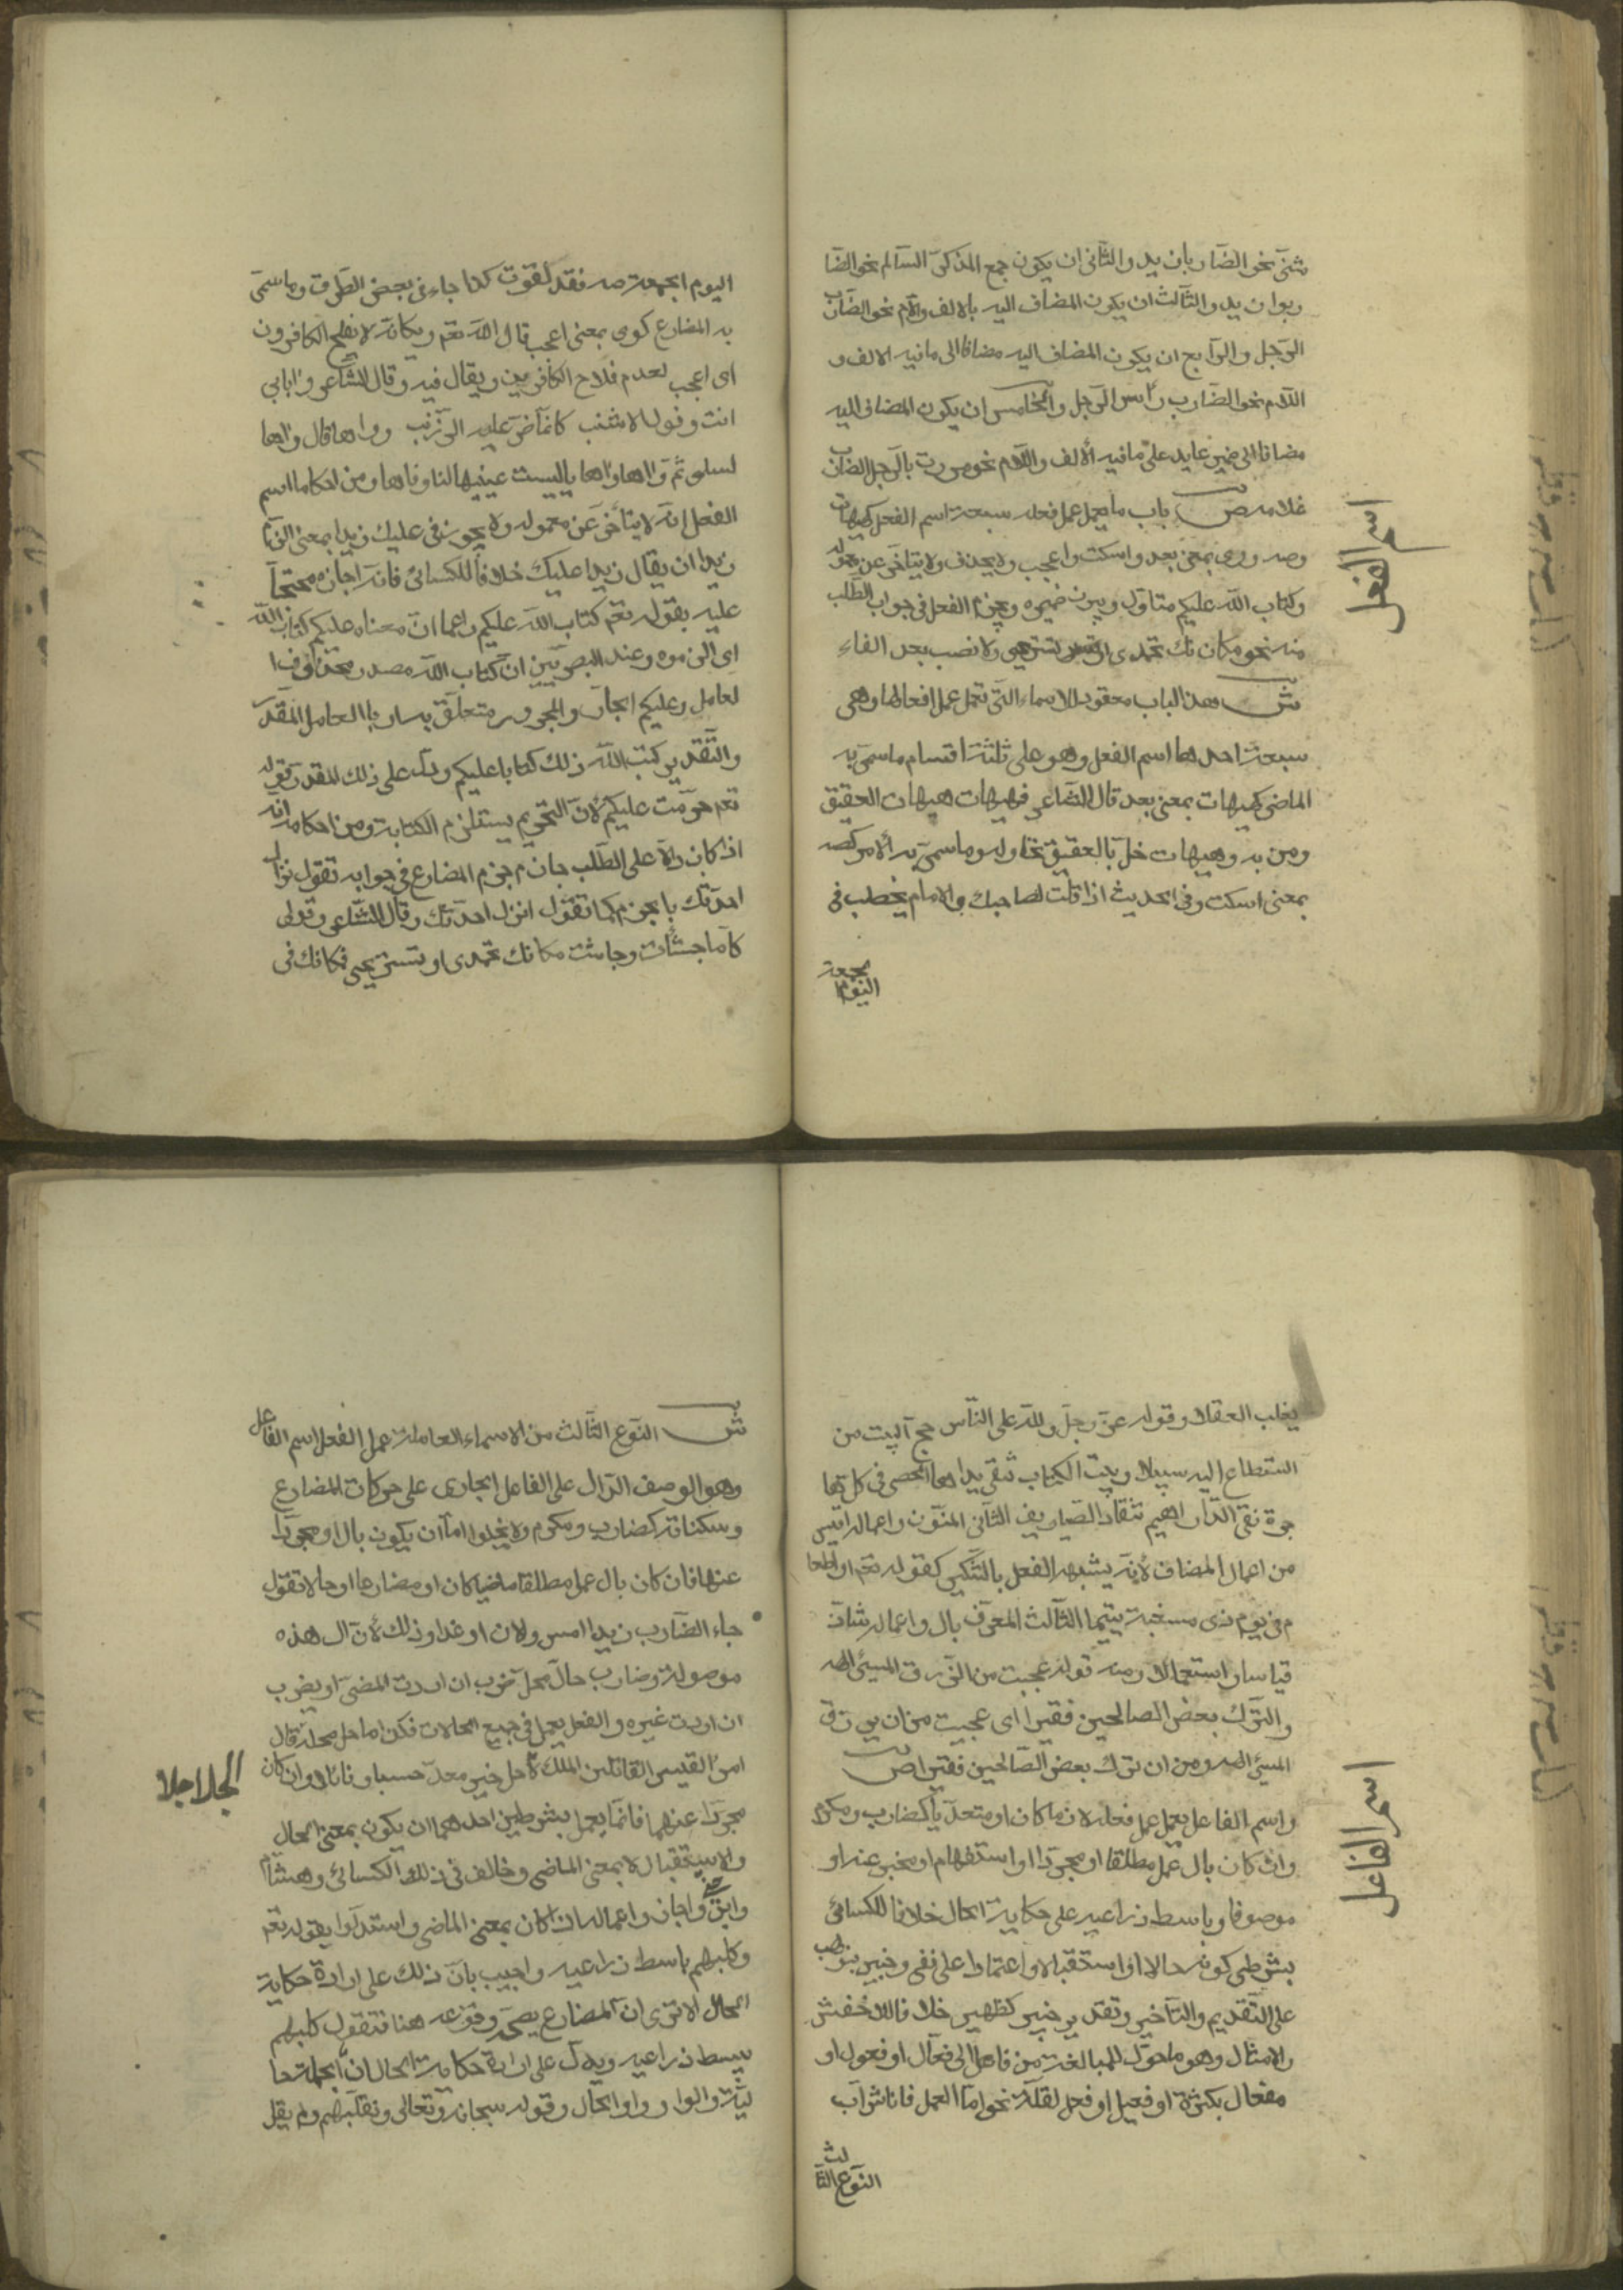 شنى نحو الضاربان زيد والثانى ان يكون جمع المذكر السالم نحو الضا
ربوا زيد والثالث ان يكون المضاف اليه بالالف واللام نحو الضارب
الرجل والرابع ان يكون المضاف اليه مضافا الى مافيه الالف و
اللام نحو الضارب رأس الرجل والخامس ان يكون المضاف اليه
مضافا الى ضمير عايد على مافيه الالف واللام نحو مررت بالرجل الضارب
غلامه ص باب ما يعمل عمل فعله سبعة اسم الفعل كهيهات
وصه ووى بمعنى بعد واسكت واعجب ولا يحذف ولا يتاخر عن معموله
وكتاب الله عليكم متاول ويبرز ضميره ويجزم الفعل فى جواب الطلب
منه نحو مكانك تحمدى او تستريحى ولا نصب بعد الفاء
ش هذا الباب معقود للاسماء التى تعمل عمل افعالها وهى
سبعة احدها اسم الفعل وهو على ثلثة اقسام ماسمى به
الماضى كهيهات بمعنى بعد قال الشاعر فهيهات هيهات العقيق
ومن به وهيهات خل بالعقيق نحاوله وماسمى به الامر كصه
بمعنى اسكت وفى الحديث اذا قلت لصاحبك والامام يخطب فى
اليوم
اسم الفعل
اليوم الجمعة صه فقد لغوت كذا جاء فى بعض الطرق وماسمى
به المضارع كوى بمعنى اعجب قال الله تعم ويكانه لا يفلح الكافرون
اى اعجب لعدم فلاح الكافرين ويقال فيه وقال الشاعر وابابي
انت وفوك الاشنب كانما ذر عليه الزرنب وواها قال واها
لسلمى ثم واها واها ياليت عينيها لنا وفاها ومن احكام اسم
الفعل انه لا يتاخر عن معموله ولا يجوز فى عليك زيدا بمعنى الزم
زيدا ان يقال زيدا عليك خلافا للكسائى فانه اجازه محتجا
عليه بقوله تعم كتاب الله عليكم زاعما ان معناه عليكم كتاب الله
اى الزموه وعند البصريين ان كتاب الله مصدر محذوف ا
لعامل وعليكم الجار والمجرور متعلق به او با العامل المقدر
والتقدير كتب الله ذلك كتابا عليكم ودل على ذلك المقدر قوله
تعم حرمت عليكم لان التحريم يستلزم الكتابة ومن احكامه انه
اذا كان دالا على الطلب جاز جزم المضارع فى جوابه تقول نزال
احدثك بالجزم كما تقول انزل احدثك وقال الشاعر وقولى
كلما جشأت وجاشت مكانك تحمدى او تستريحى فكانك فى
يغلب العقلا وقوله عز وجل ولله على الناس حج البيت من
استطاع اليه سبيلا وبيت الكتاب تنفى يداها الحصى فى كل ها
جرة نفى الدراهيم تنقاد الصياريف الثانى المنون واعماله اقيس
من اعمال المضاف لانه يشبه الفعل بالتنكير كقوله تعم او اطعا
م فى يوم ذى مسغبة يتيما الثالث المعرف بال واعماله شاذ
قياسا واستعمالا ومنه قوله عجبت من الرزق المسيئ الهه
والترك بعض الصالحين فقيرا اى عجبت من ان يرزق
المسيئ الهه ومن ان ترك بعض الصالحين فقيرا ص
واسم الفاعل يعمل عمل فعله لازما كان او متعديا كضارب ومكرم
وان كان بال عمل مطلقا او مجردا او استفهام او مخبر عنه او
موصوفا وباسط ذراعيه على حكاية الحال خلافا للكسائى
بشرطى كونه حالا او استقبالا واعتمادا على نفى وخبير بنولهب
على التقديم والتاخير وتقدير خبير كظهير خلافا للاخفش
والامثال وهو ما حول للمبالغة من فاعل الى فعال او فعول او
مفعال بكثرة او فعيل او فعل لقلة نحو اما العسل فانا شراب
النوع الثا
لث
اسم الفاعل
ش النوع الثالث من الاسماء العاملة عمل الفعل اسم الفاعل
وهو الوصف الدال على الفاعل الجارى على حركات المضارع
وسكناته كضارب ومكرم ولا يخلوا اما ان يكون بال او مجردا
عنها فان كان بال عمل مطلقا ماضيا كان او مضارعا او حالا تقول
جاء الضارب زيدا امس ولان او غدا وذلك لان ال هذه
موصولة وضارب حال محل ضرب ان اردت المضى او يضرب
ان اردت غيره والفعل يعمل فى جميع الحالات فكن اما حل محله قال
امرئ القيس القاتلين الملك لاحل خير معد حسبا ونائلا وان كان
الحلاحلا
مجردا عنها فانما يعمل بشرطين احدهما ان يكون بمعنى الحال
والاستقبال لا بمعنى الماضى وخالف فى ذلك الكسائى وهشام
وابن واجاز واعماله ان كان بمعنى الماضى واستدلوا بقوله تعم
وكلبهم باسط ذراعيه واجيب بان ذلك على ارادة حكاية
الحال الا ترى ان المضارع يصح وقوعه هنا فتقول كلبهم
يبسط ذراعيه ويدل على ارادة حكاية الحال ان الجملة حا
لية والواو واو الحال وقوله سبحانه وتعالى ونقلبهم ولم يقل